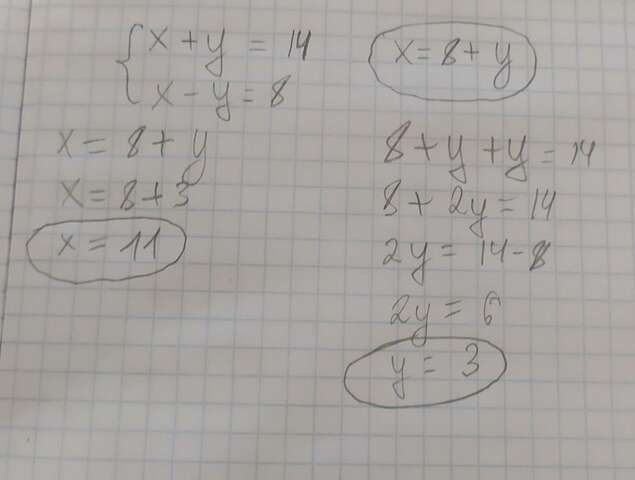 x + y = 14
x - y = 8
x = 8 + y
x = 8 + 3
x = 11
x = 8 + y
8 + y + y = 14
8 + 2y = 14
2y = 14 - 8
2y = 6
y = 3